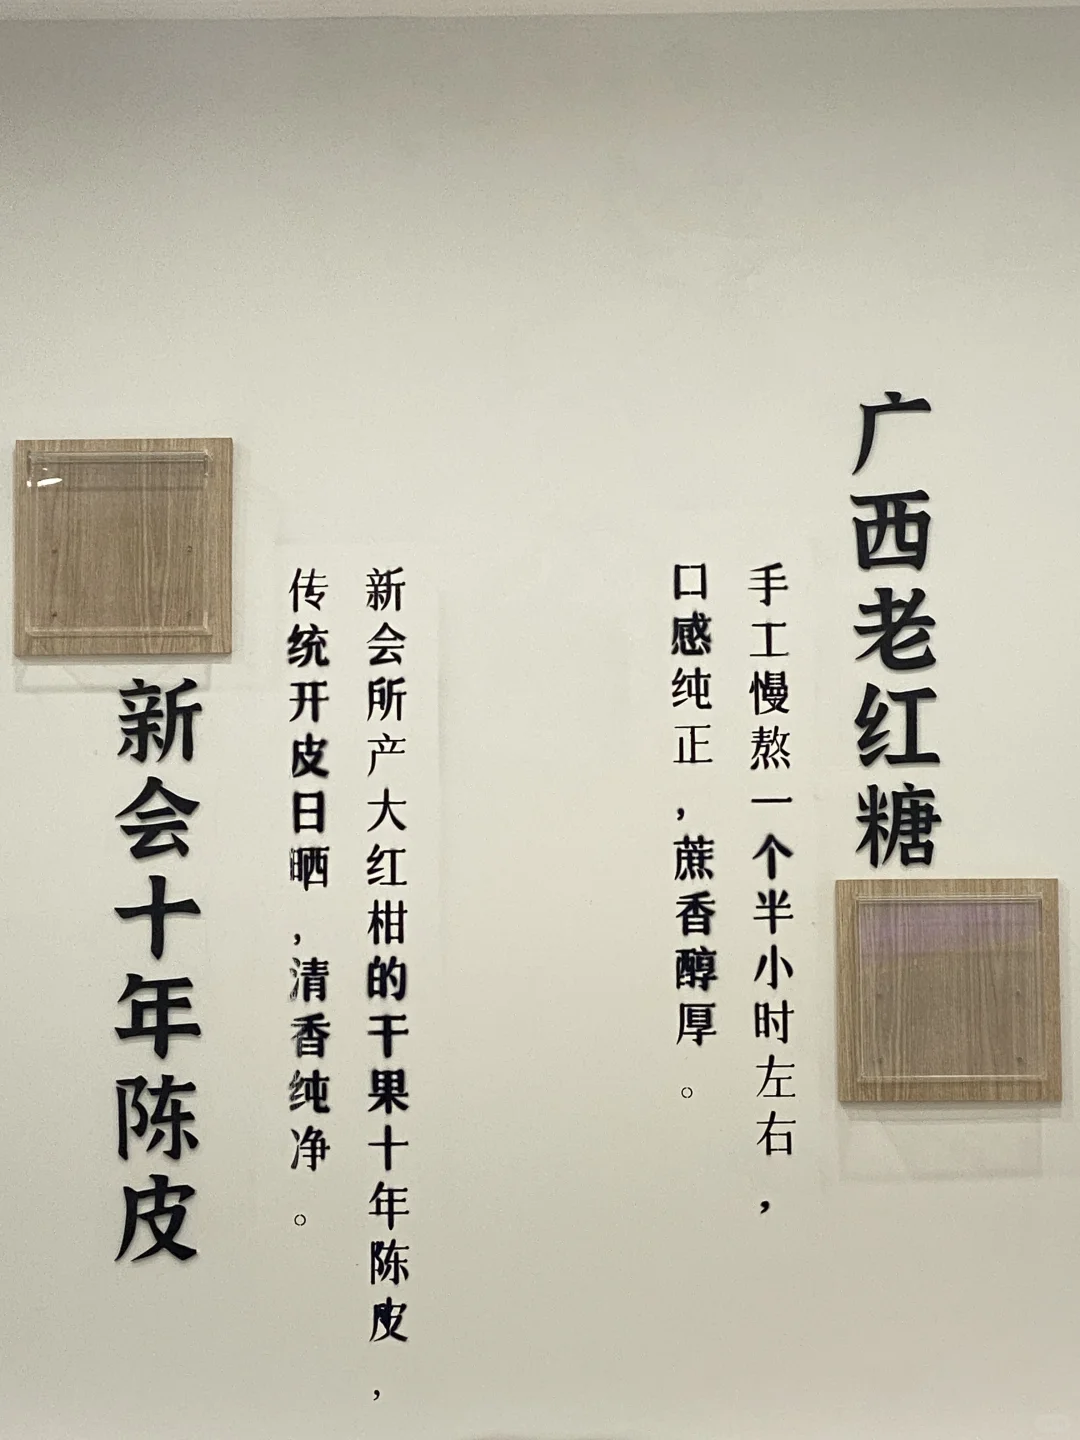 广西老红糖
手工慢熬一个半小时左右，
口感纯正，蔗香醇厚。
新会所产大红柑的干果十年陈皮，
传统开皮日晒，清香纯净。
新会十年陈皮